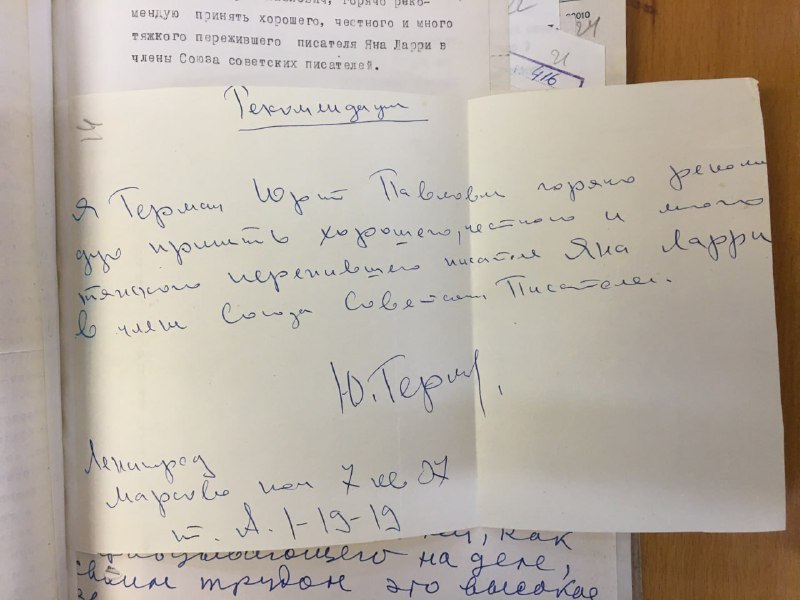 горячо реко-
мендую принять хорошего, честного и много
тяжкого пережившего писателя Яна Ларри в
члены Союза советских писателей.
416
24
21
14
Рекомендация
Я Герман Юрий Павлович горячо рекомен
дую принять хорошего, честного и много
тяжкого пережившего писателя Яна Ларри
в члены Союза Советских Писателей.
Ю. Герман.
Ленинград
Марсово поле 7 кв 37
т. А. 1-19-19
как
на деле,
своим трудом это высокое